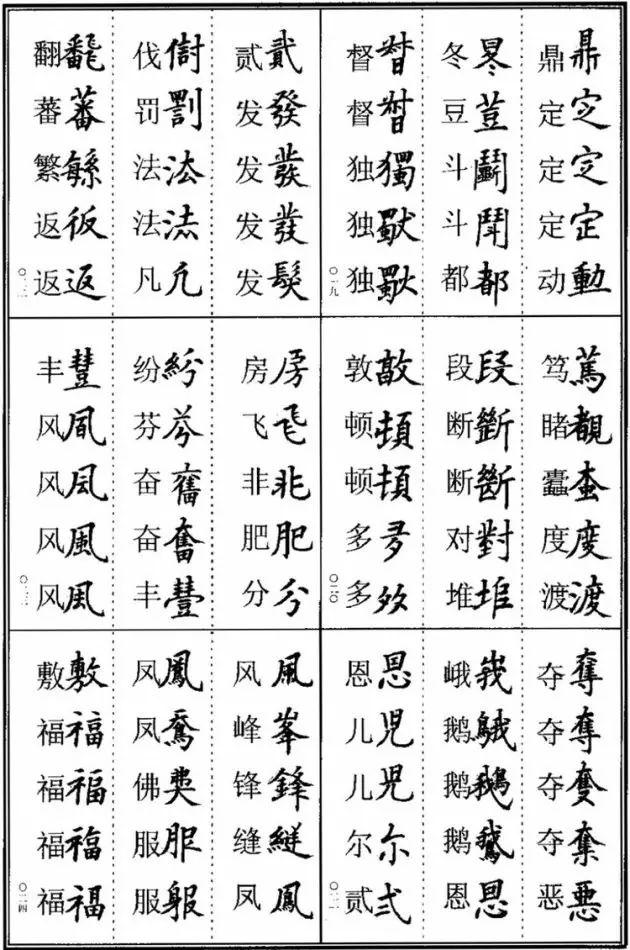 鼎鼎
定㝎
定㝎
定定
动動
冬
豆荳
斗鬭
斗鬥
都都
督
督
独獨
独
独
〇一九
笃篤
睹覩
蠹
度度
渡渡
段段
断斷
断斷
对對
堆塠
敦敦
顿頓
顿頓
多
多
〇二〇
夺奪
夺奪
夺
夺
恶悪
峨峩
鹅
鹅鵝
鹅鵞
恩恩
恩恩
儿児
儿兒
尔尓
贰弍
〇二一
贰貳
发發
发發
发發
发髮
伐
罚罰
法㳒
法法
凡凢
翻
蕃蕃
繁緐
返
返返
〇二二
房房
飞
非非
肥肥
分分
纷紛
芬芬
奋
奋奮
丰豐
丰豐
风
风凬
风風
风風
〇二三
风風
峰峯
锋鋒
缝縫
凤鳳
凤鳳
凤
佛
服服
服
敷敷
福福
福福
福福
福福
〇二四